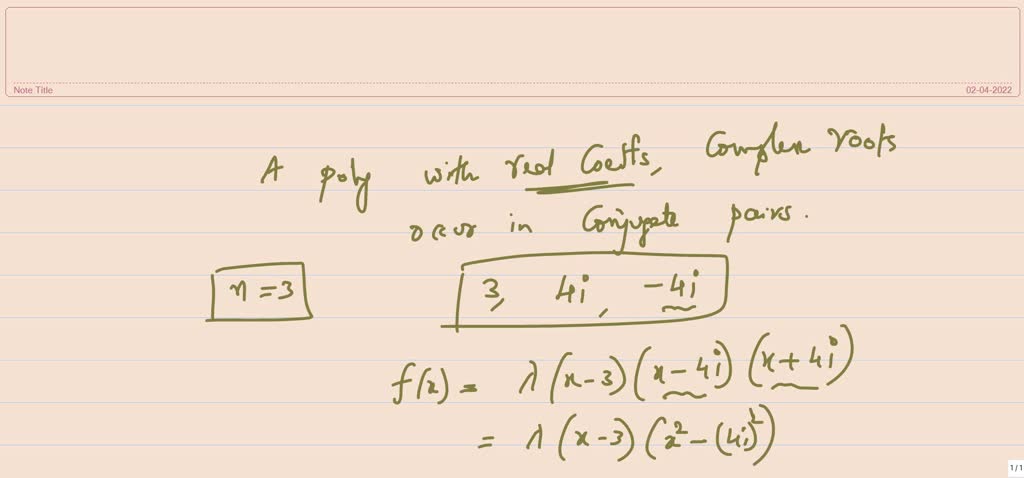 Note Title 02-04-2022
A poly with real Coeffs, Complex roots
occur in Conjugate pairs.
n = 3 3, 4i, -4i
f(x) = λ(x-3)(x-4i)(x+4i)
= λ(x-3)(x²-(4i)²)
1/1